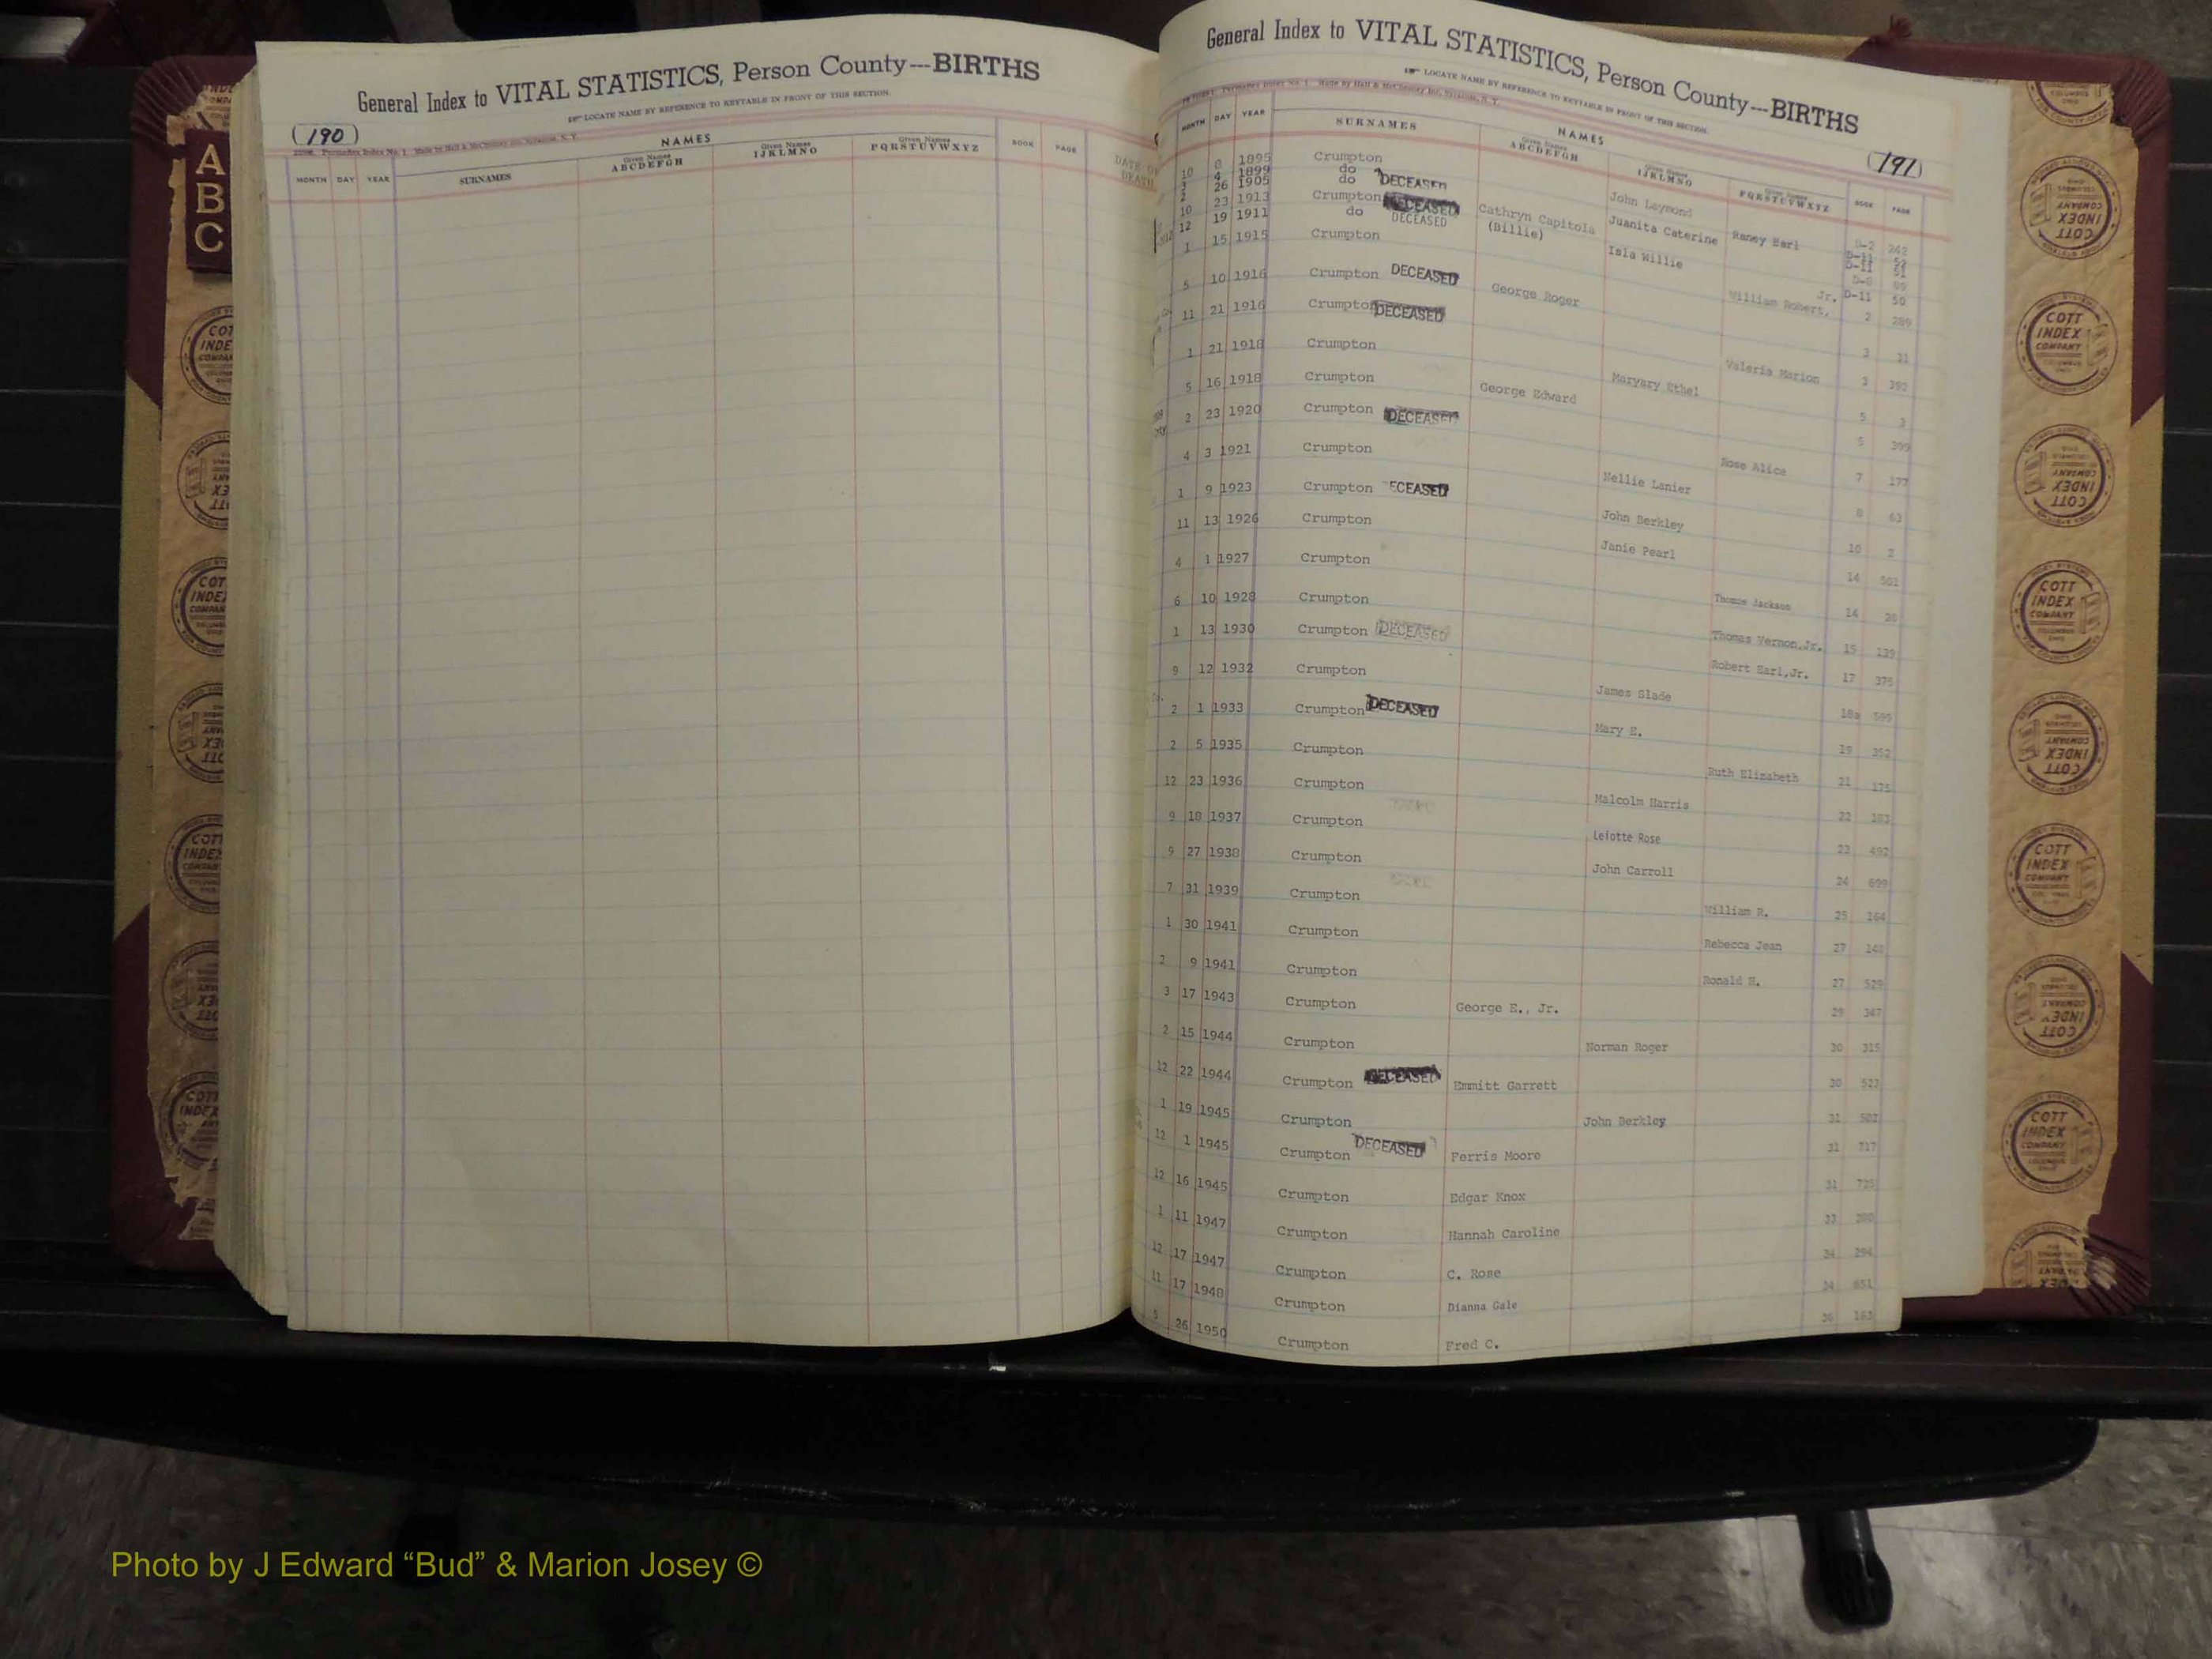 General Index to VITAL STATISTICS, Person County---BIRTHS
LOCATE NAME BY REFERENCE TO KEYTABLE IN FRONT OF THIS SECTION.
(190)
NAMES
MONTH DAY YEAR SURNAMES Given Names ABCDEFGH Given Names IJKLMNO Given Names PQRSTUVWXYZ BOOK PAGE
A
B
C
General Index to VITAL STATISTICS, Person County---BIRTHS
LOCATE NAME BY REFERENCE TO KEYTABLE IN FRONT OF THIS SECTION.
(191)
NAMES
MONTH DAY YEAR SURNAMES Given Names ABCDEFGH Given Names IJKLMNO Given Names PQRSTUVWXYZ BOOK PAGE
10 8 1895 Crumpton John Laymond
4 1899 do DECEASED Juanita Caterine
2 26 1905 do Raney Earl
10 23 1913 Crumpton DECEASED Isla Willie
12 19 1911 do DECEASED Cathryn Capitola (Billie) D-11 50
1 15 1915 Crumpton William Robert, Jr. 2 289
5 10 1916 Crumpton DECEASED George Roger 3 31
11 21 1916 Crumpton DECEASED Valeria Marion 3 392
1 21 1918 Crumpton Maryary Ethel 5 3
5 16 1918 Crumpton George Edward 5 399
2 23 1920 Crumpton DECEASED Rose Alice 7 177
4 3 1921 Crumpton Nellie Lanier 8 63
1 9 1923 Crumpton ECEASED John Berkley 10 2
11 13 1926 Crumpton Janie Pearl 14 501
4 1 1927 Crumpton Thomas Jackson 14
6 10 1928 Crumpton Thomas Vernon,Jr. 15 139
1 13 1930 Crumpton DECEASED Robert Earl,Jr. 17 375
9 12 1932 Crumpton James Slade 18a 599
2 1 1933 Crumpton DECEASED Mary E. 19 352
2 5 1935 Crumpton Ruth Elizabeth 21 175
12 23 1936 Crumpton Malcolm Harris 22
9 18 1937 Crumpton Leiotte Rose 23 492
9 27 1938 Crumpton John Carroll 24 699
7 31 1939 Crumpton William R. 25 164
1 30 1941 Crumpton Rebecca Jean 27
2 9 1941 Crumpton Ronald H. 27 529
3 17 1943 Crumpton George E., Jr. 29 347
2 15 1944 Crumpton Norman Roger 30 315
12 22 1944 Crumpton DECEASED Emmitt Garrett 30 523
1 19 1945 Crumpton John Berkley 31 502
12 1 1945 Crumpton DECEASED Ferris Moore 31 717
12 16 1945 Crumpton Edgar Knox 31
1 11 1947 Crumpton Hannah Caroline
12 17 1947 Crumpton C. Rose 34 294
11 17 1948 Crumpton Dianna Gale 651
5 26 1950 Crumpton Fred C. 36 163
COTT INDEX COMPANY
Photo by J Edward “Bud” & Marion Josey ©